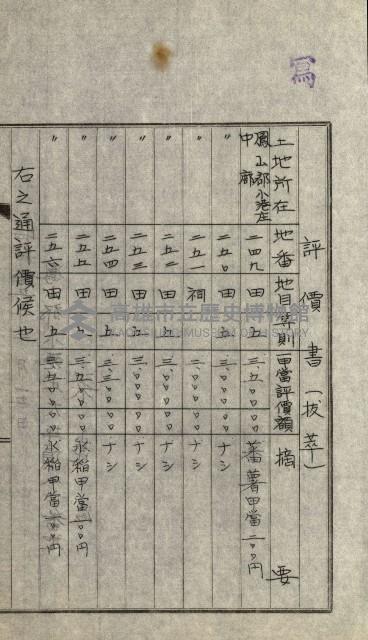 寫
評價書(拔萃)
土地所在 地番 地目 等則 一甲當評價額 摘要
鳳山郡小港庄中廍 二四九 田 五 三、五〇〇〇〇 蕃薯甲當二〇〇円
〃 二五〇 田 五 三、〇〇〇〇〇 ナシ
〃 二五一 祠 三、〇〇〇〇〇 ナシ
〃 二五二 田 五 三、〇〇〇〇〇 ナシ
〃 二五三 田 五 三、〇〇〇〇〇 ナシ
〃 二五四 田 五 三、三〇〇〇〇 ナシ
〃 二五五 田 五 三、五〇〇〇〇 水稲甲當一〇〇円
〃 二五六 田 五 三、五〇〇〇〇 水稲甲當一〇〇円
右之通評價候也
高雄市立歷史博物館
KAOHSIUNG MUSEUM OF HISTORY